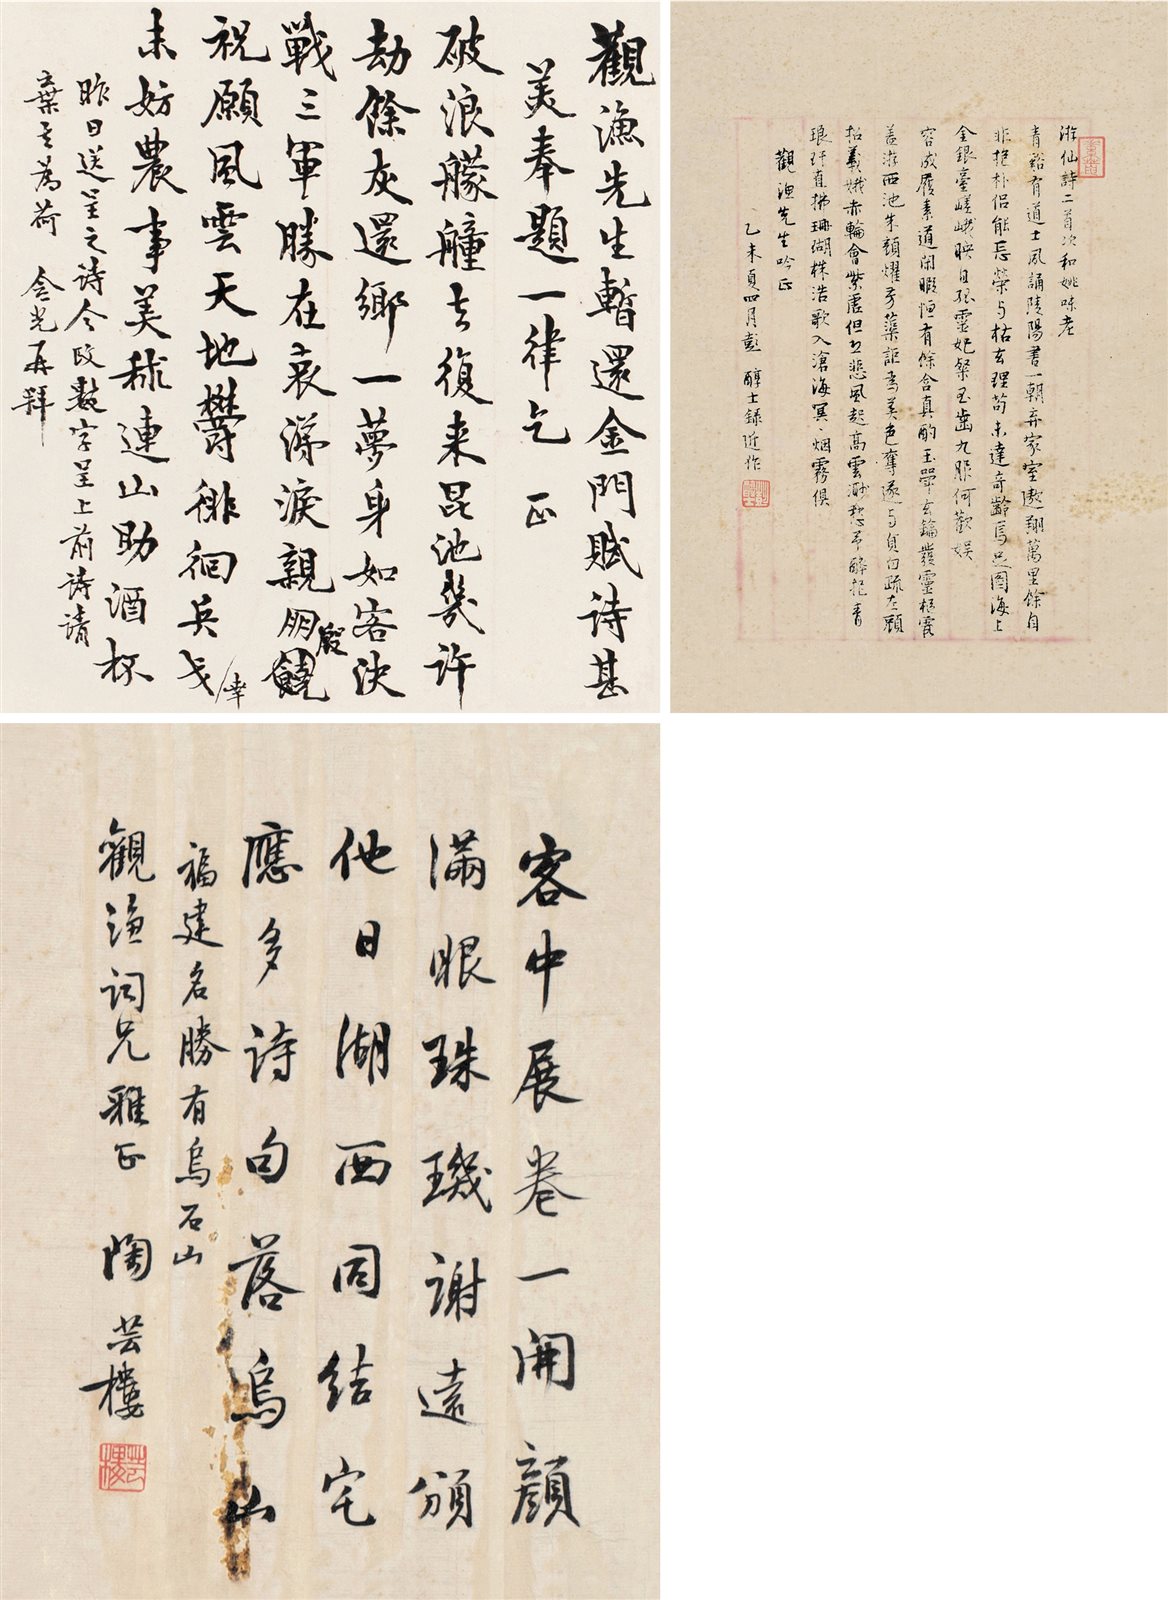 觀漁先生暫還金門賦詩甚
美奉題一律乞 正
破浪艨艟去復来昆池幾許
劫餘灰還鄉一夢身如客決
戰三軍勝在哀涕淚親朋饒
殷
祝願風雲天地鬱徘徊兵戈
幸
未妨農事美秫連山助酒杯
昨日送呈之詩今改數字呈上前詩請
棄去為荷 含光再拜
游仙詩二首次和姚味老
青谿有道士夙誦陵陽書一朝弃家室遨翔萬里餘自
非抱朴侣能忘榮与枯玄理苟未達奇齡焉足圖海上
金銀臺嵯峨映自孤靈妃粲玉齒九服何歡娱
容成履素道闲暇恒有餘含真酌玉斝玄鑰發靈樞霞
盖游西池朱顔耀芳蕖詎為美色奪遂与貞白疏左顧
招羲娥赤輪會紫虚但恐悲風起高雲渺愁予醉把青
琅玕直拂珊瑚株浩歌入滄海冥冥烟霧俱
觀漁先生吟正
乙未夏四月彭醇士録近作
客中展卷一開顔
滿眼珠璣謝遠頒
他日湖西同結宅
應多詩句落烏山
福建名勝有烏石山
觀漁詞兄雅正 陶芸樓
芸樓